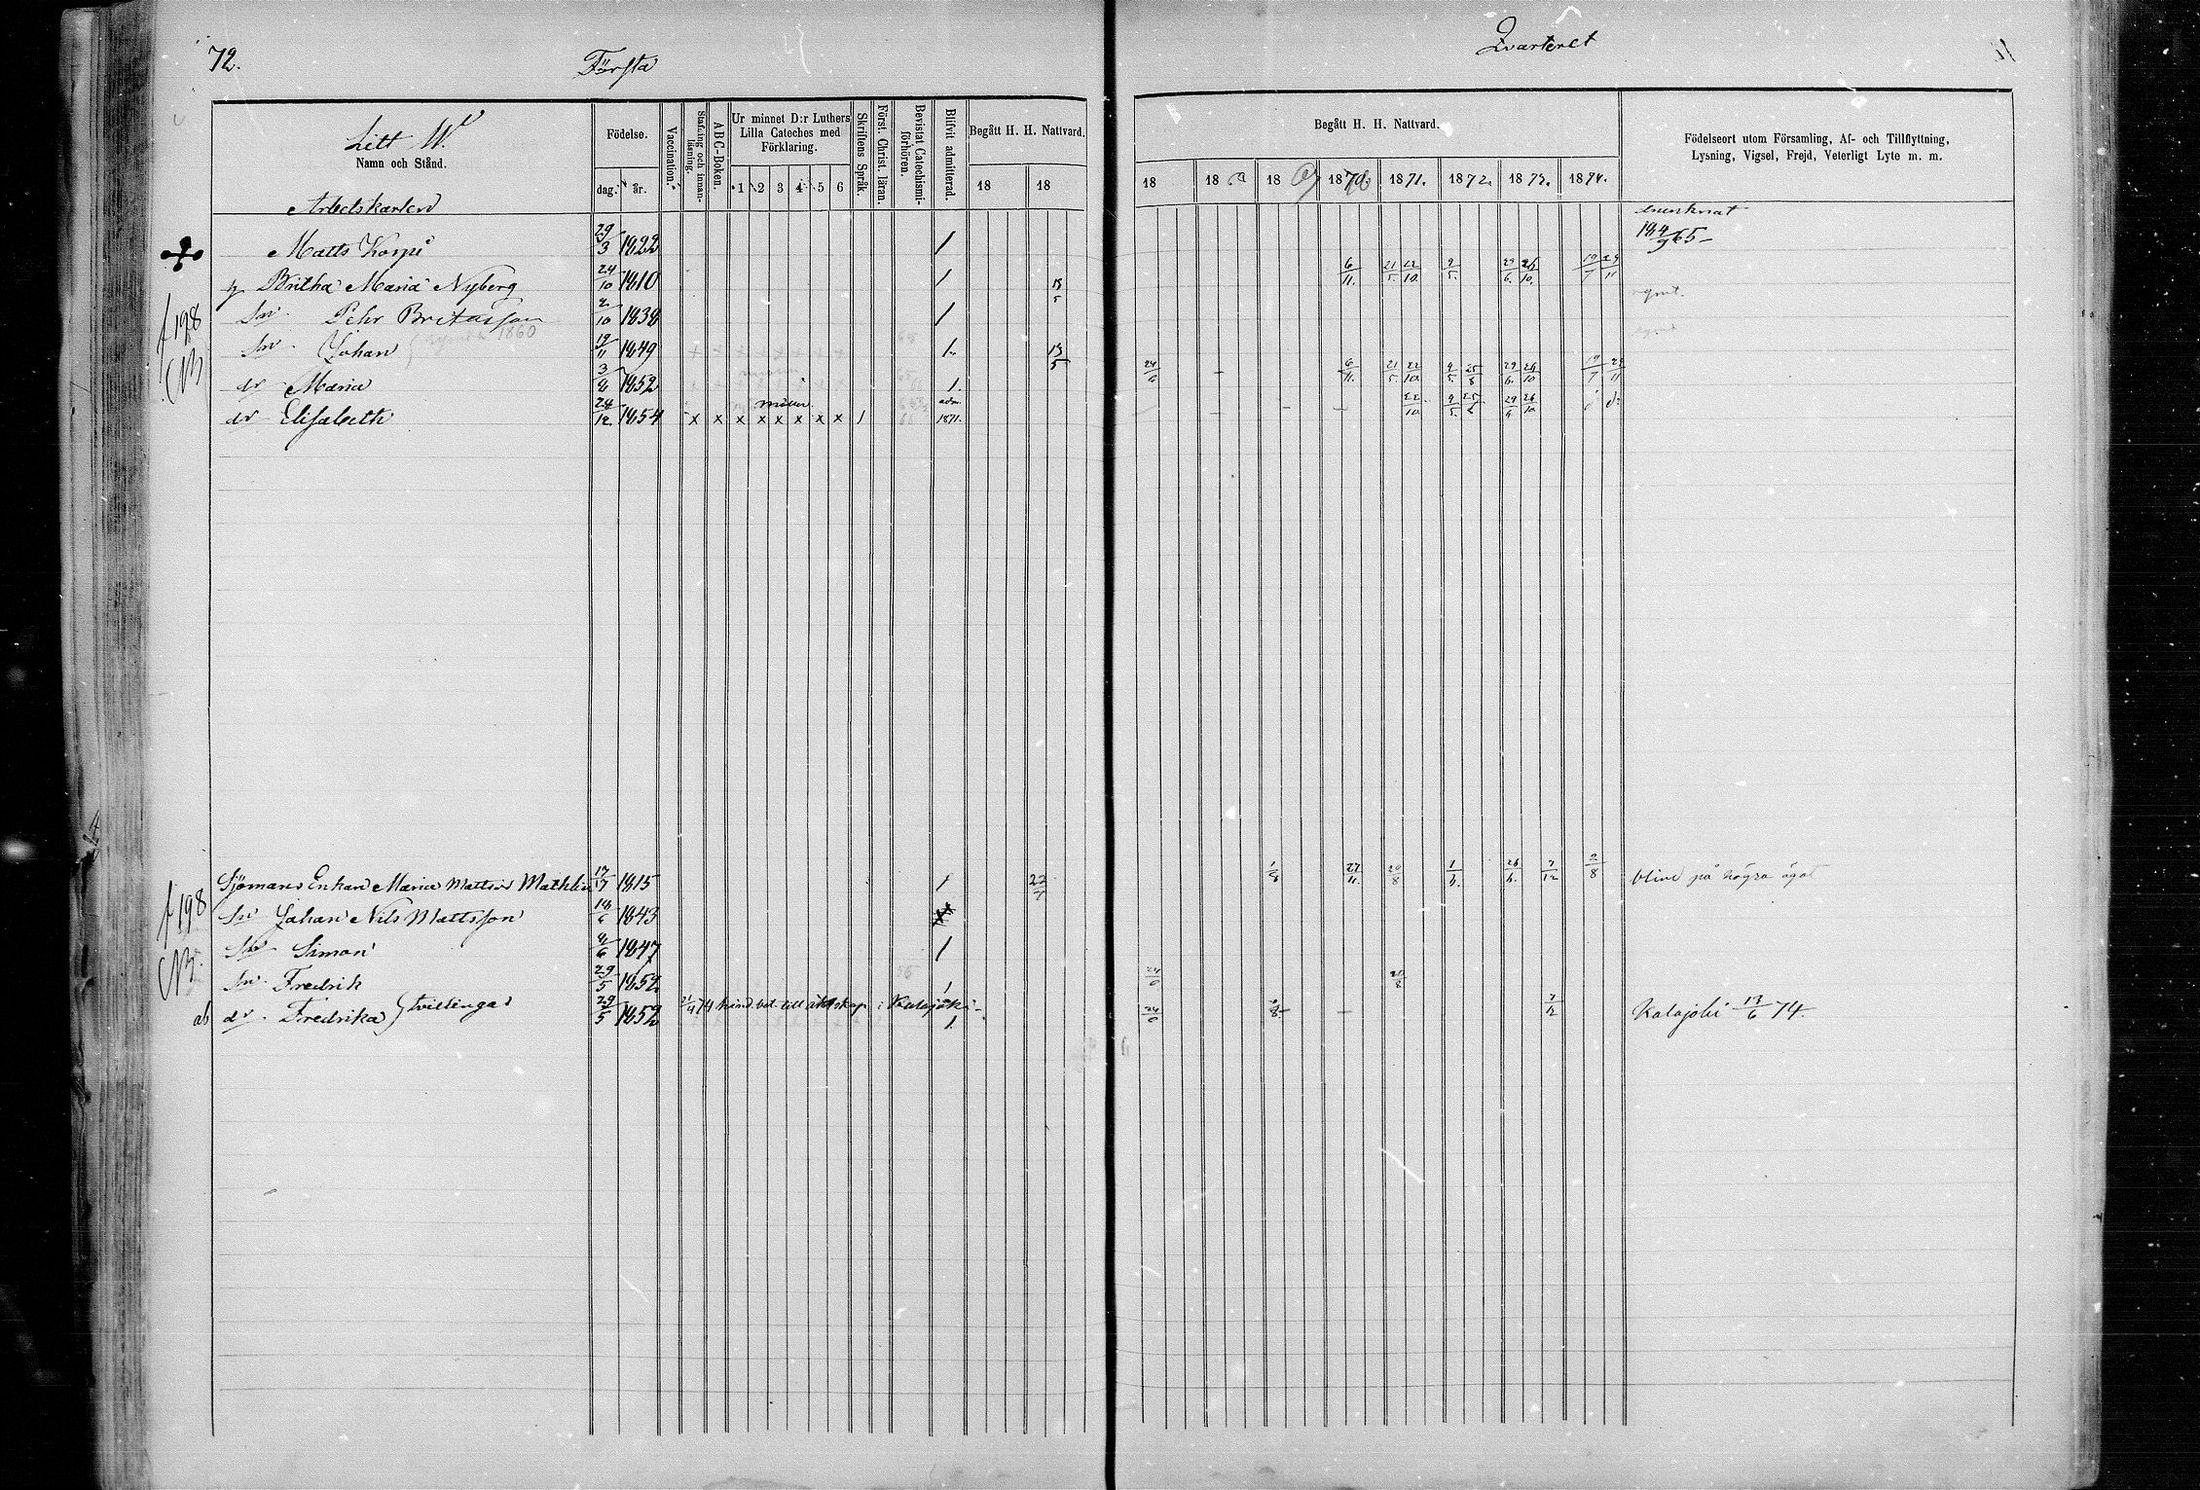 72.
Första
Qvarteret
Litt W.
Namn och Stånd.
Födelse.
dag. år.
Vaccination.
Stafning och innanläsning.
ABC-Boken.
Ur minnet D:r Luthers Lilla Cateches med Förklaring.
1 2 3 4 5 6
Skriftens Språk.
Först. Christ. läran.
Bevistat Catechismiförhören.
Blifvit admitterad.
Begått H. H. Nattvard.
18 18
Begått H. H. Nattvard.
18 18 18 1870 1871. 1872. 1873. 1874.
Födelseort utom Församling, Af- och Tillflyttning,
Lysning, Vigsel, Frejd, Veterligt Lyte m. m.
Arbetskarlen
Matts Korpi 29/3 1822 /
Britha Maria Nyberg 24/10 1810 / 13/5 6/11. 21/5. 22/10. 9/5. 29/6. 26/10. 19/7 29/11
f 198
Sn Pehr Britasson 2/10 1838 /
Sn Johan 1860 12/11 1849 1. 13/5
dr Maria 3/8 1852 1. 24/6 - 6/11. 21/5. 22/10. 9/5. 25/8 29/6. 26/10 19/7 29/11
dr Elisabeth 24/12. 1854 x x x x x x x x / adm. 1871. - - - 22/10 9/5. 29/6 26/10
Sjömans Enkan Maria Mattsd Mathlin 17/7 1815 / 22/7 1/8 27/11. 20/8 1/6. 26/6. 7/12 2/8 blind på högra ögat
f 198
Sn Johan Nils Mattsson 18/6 1843
Sn Simon 4/6 1847 /
Sn Fredrik 29/5 1852 / 24/6 20/8
ab dr Fredrika tvillingar 29/5 1852 74 hind. bet. till äktskap i Kalajoki - 1. 24/6 - 7/12 Kalajoki 13/6 74.